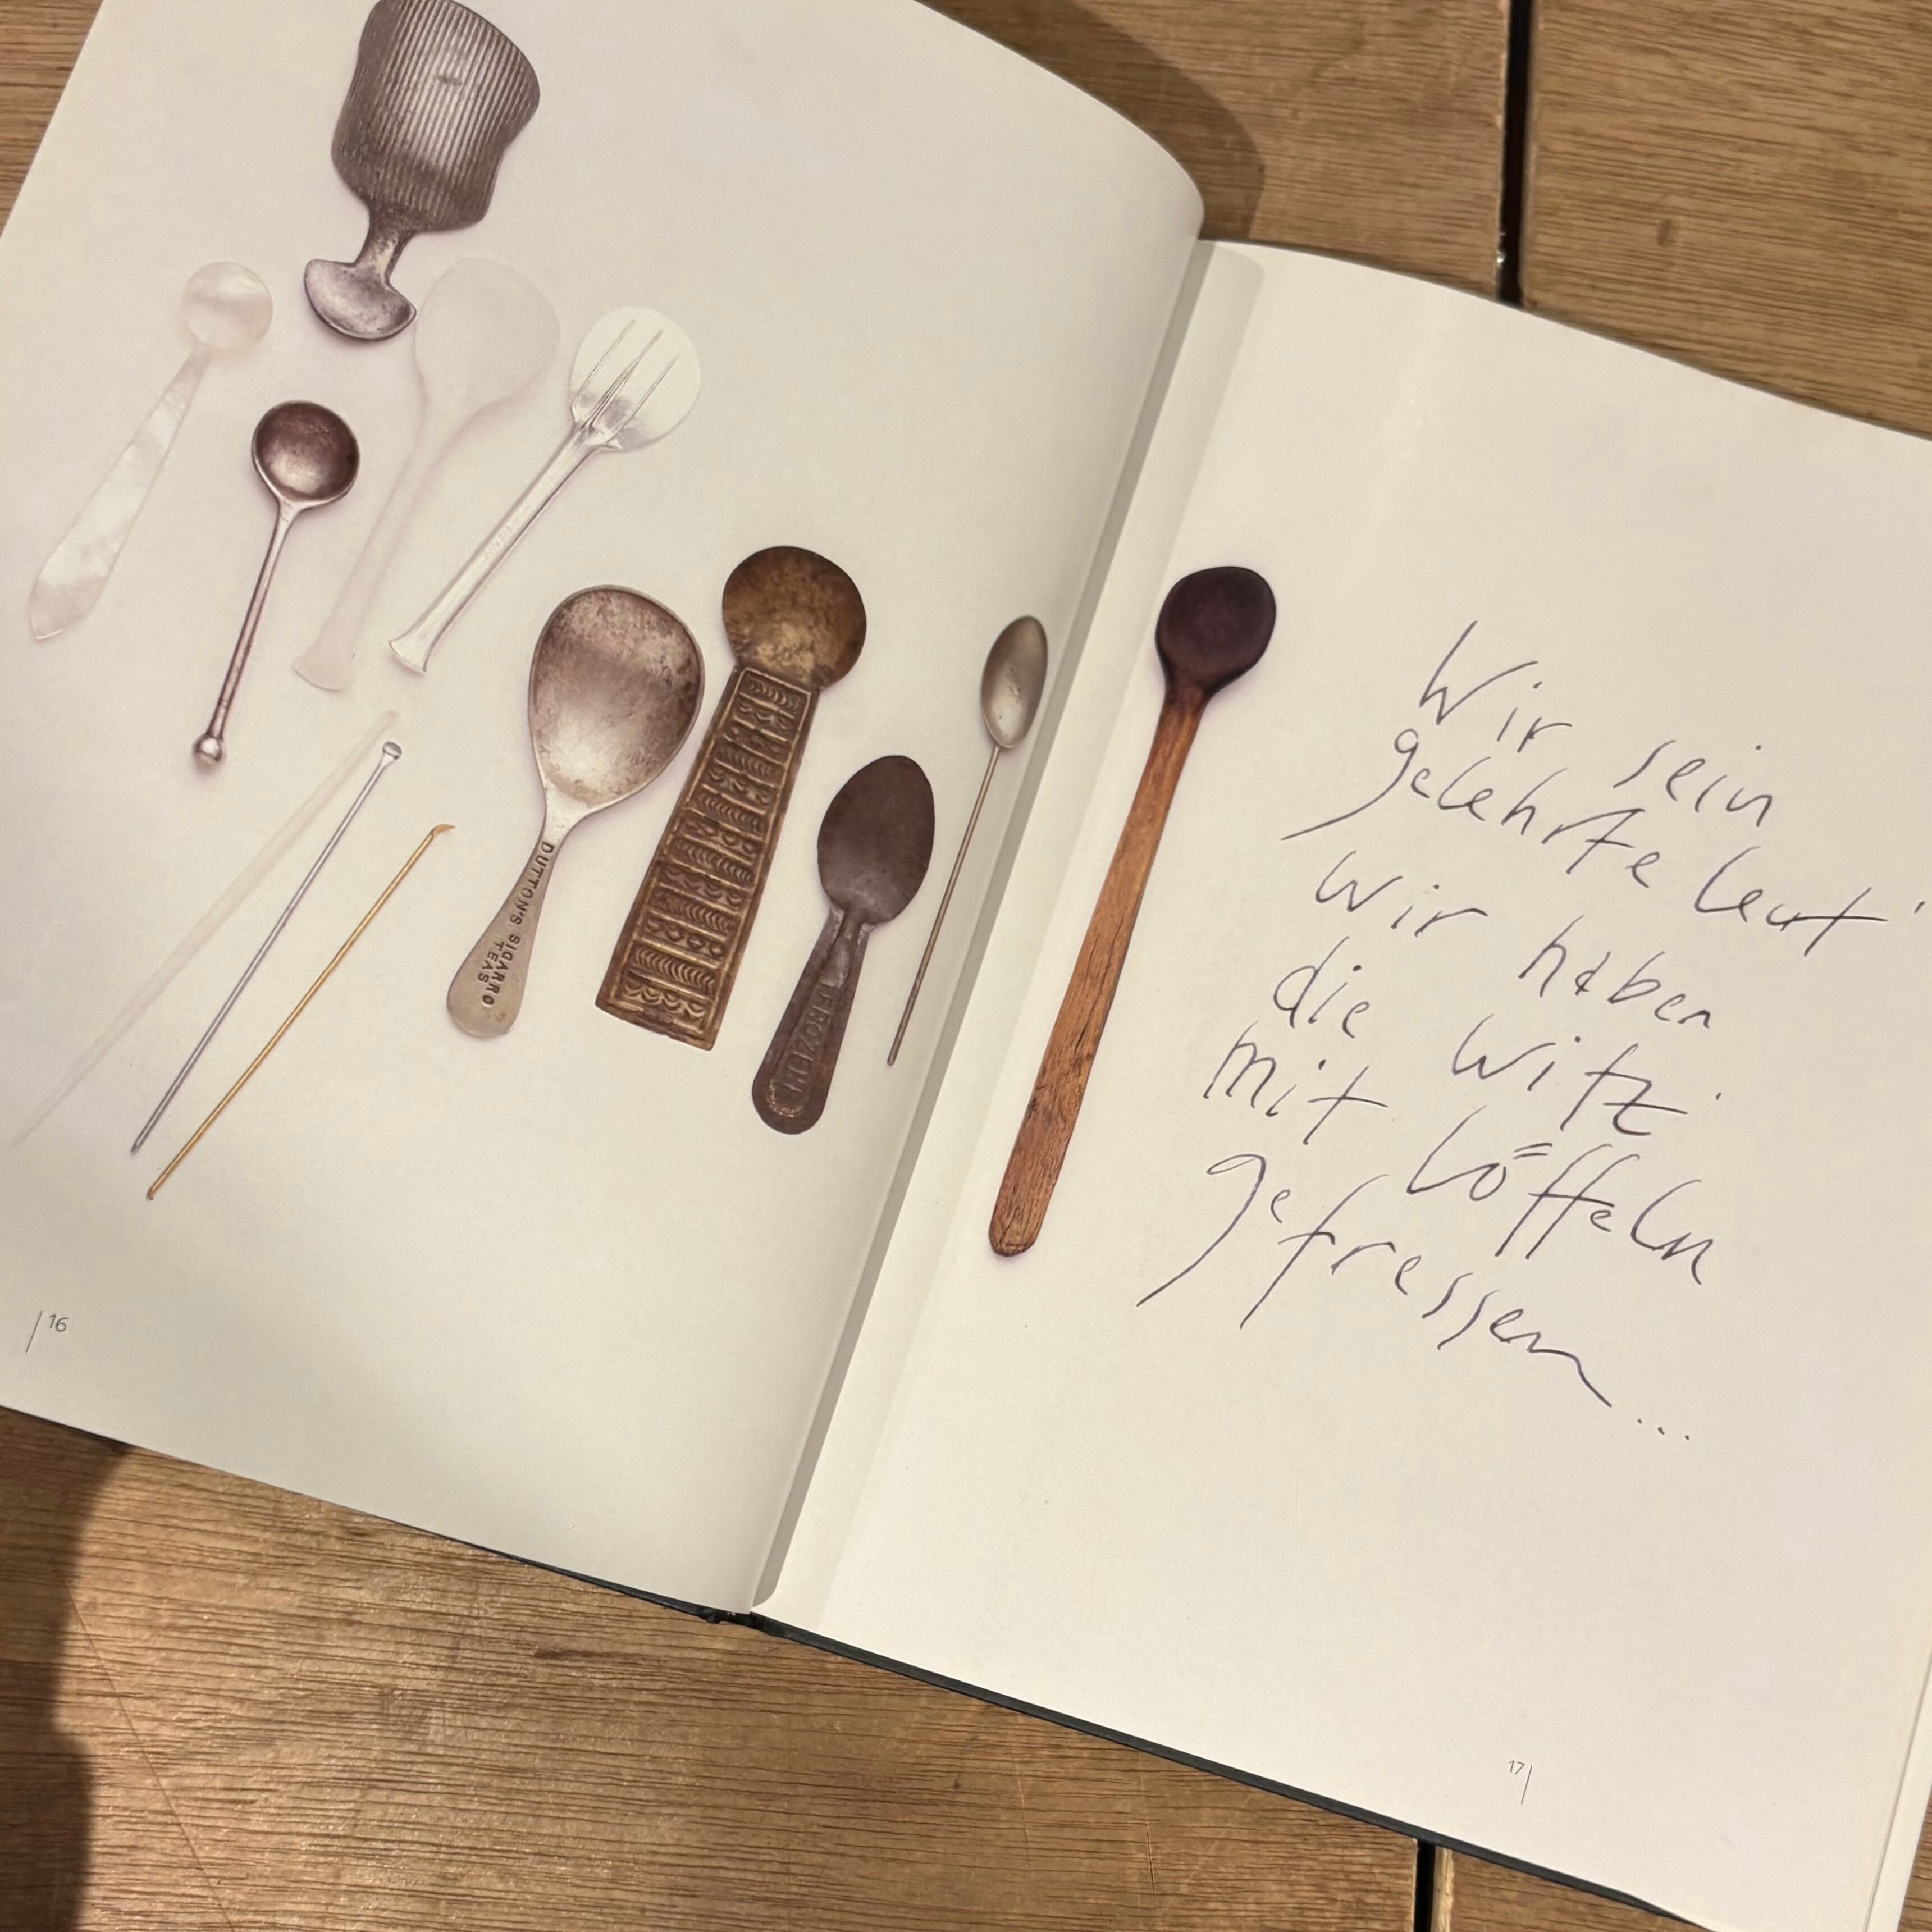 DUTTON'S SIGARRO
TEAS
16
Wir sein
gelehrte Leut'
Wir haben
die Witz'
mit Löffeln
gefressen...
17